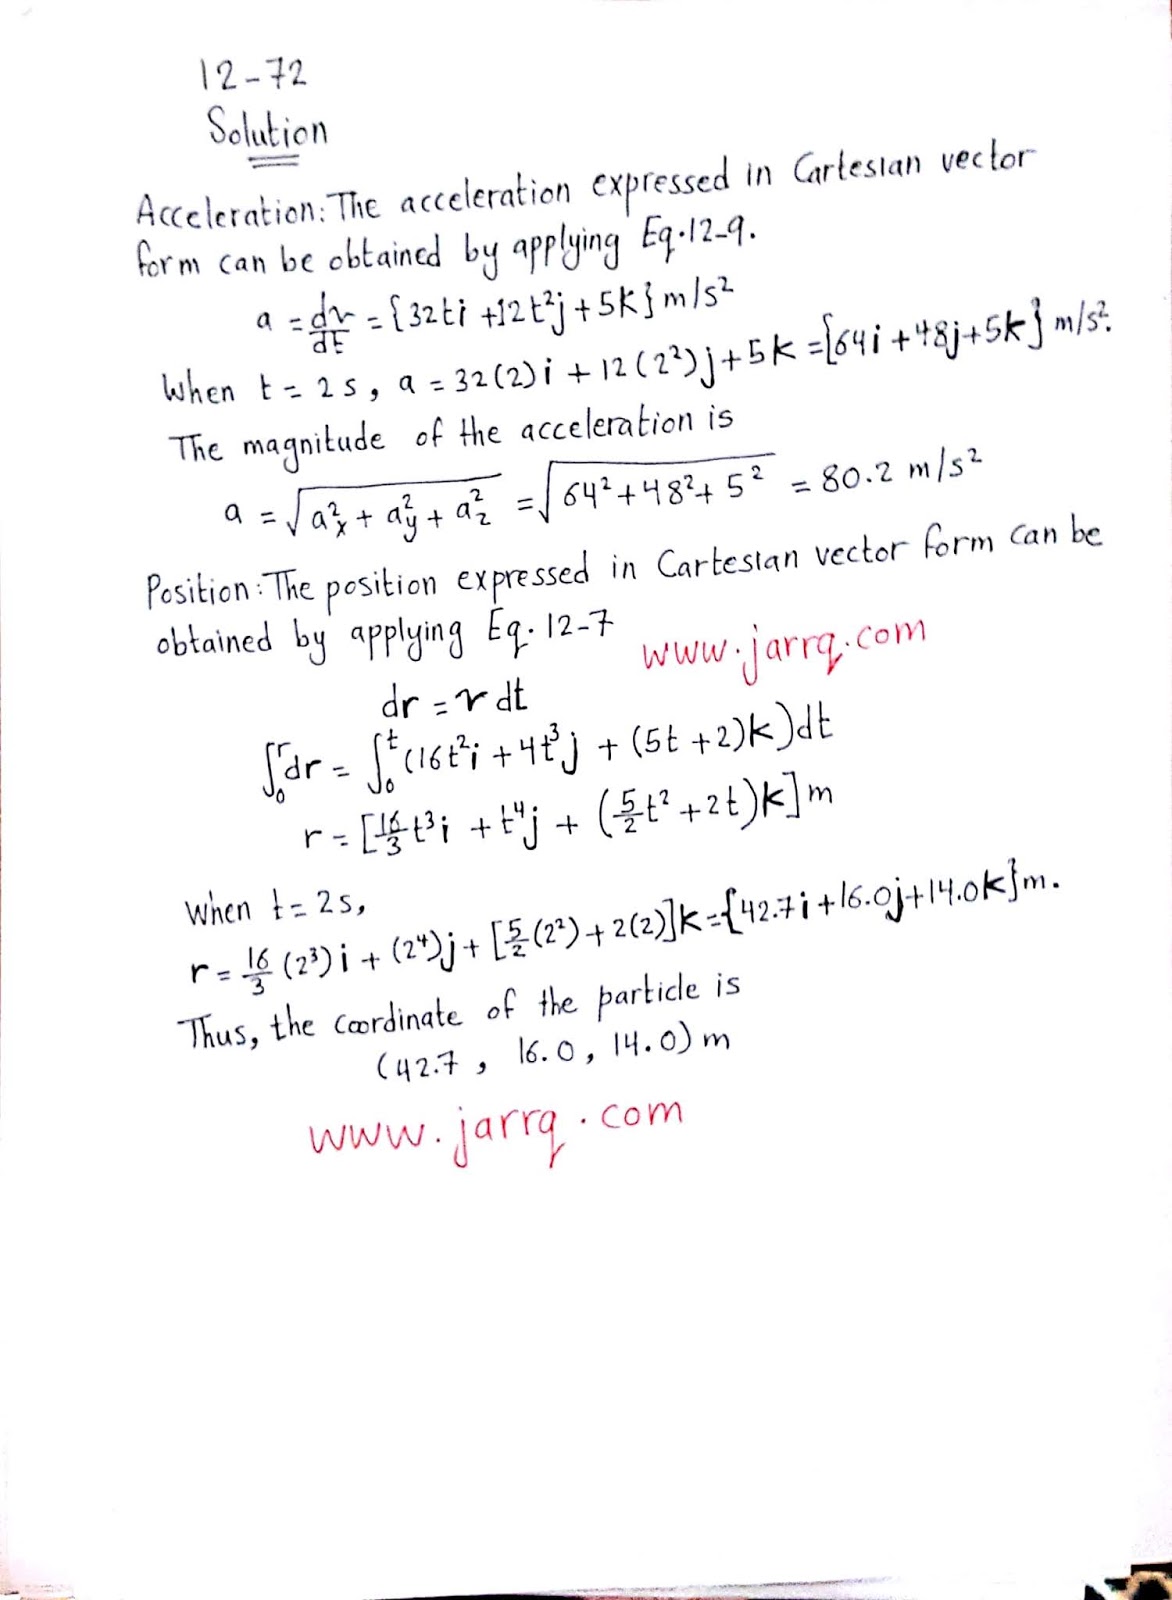 12-72
Solution
Acceleration: The acceleration expressed in Cartesian vector
form can be obtained by applying Eq.12-9.
a = dv/dt = {32ti +12t²j + 5k} m/s²
When t = 2s, a = 32(2)i + 12(2²)j + 5k = {64i + 48j + 5k} m/s².
The magnitude of the acceleration is
a = √(a²x + a²y + a²z) = √(64² + 48² + 5²) = 80.2 m/s²
Position: The position expressed in Cartesian vector form can be
obtained by applying Eq. 12-7
www.jarrq.com
dr = v dt
∫₀ʳ dr = ∫₀ᵗ (16t²i + 4t³j + (5t + 2)k)dt
r = [16/3 t³i + t⁴j + (5/2 t² + 2t)k] m
when t = 2s,
r = 16/3 (2³)i + (2⁴)j + [5/2 (2²) + 2(2)]k = {42.7i + 16.0j + 14.0k}m.
Thus, the coordinate of the particle is
(42.7, 16.0, 14.0) m
www.jarrq.com